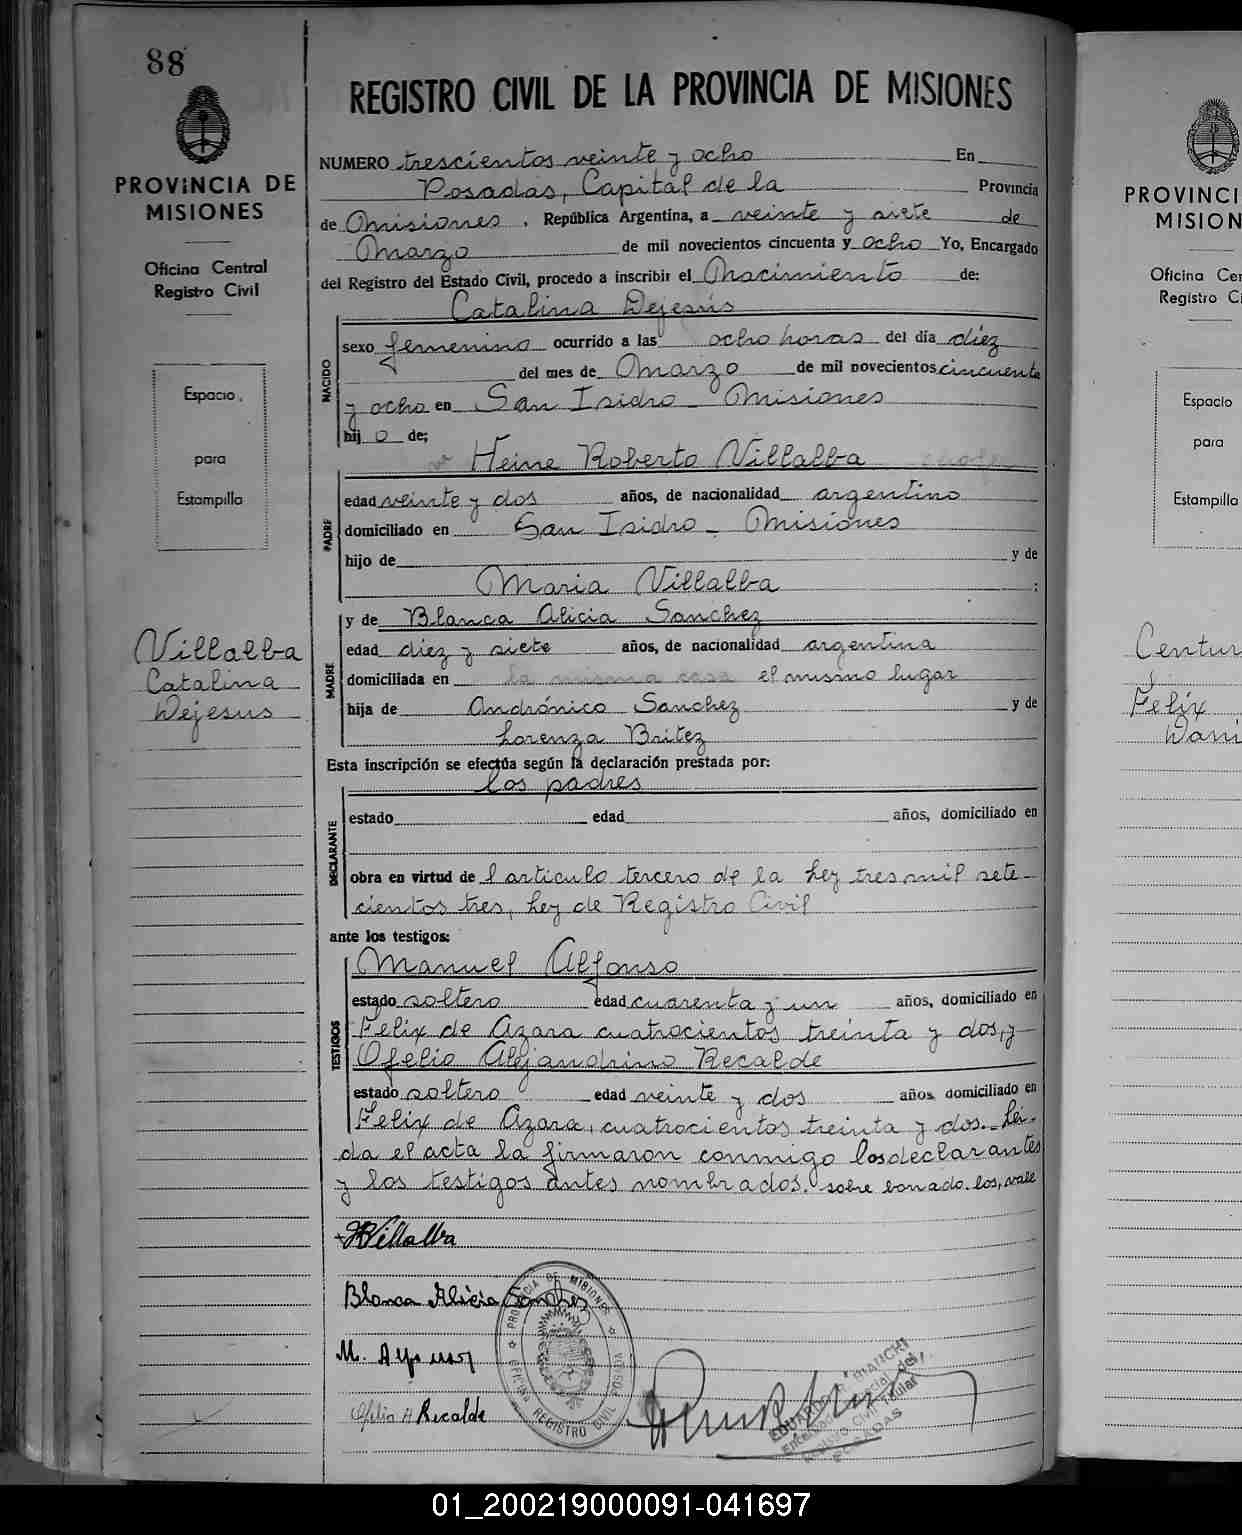 88
PROVINCIA DE
MISIONES
Oficina Central
Registro Civil
Espacio
para
Estampilla
Villalba
Catalina
Dejesus
REGISTRO CIVIL DE LA PROVINCIA DE MISIONES
NUMERO trescientos veinte y ocho En
Posadas, Capital de la Provincia
de Misiones, República Argentina, a veinte y siete de
Marzo de mil novecientos cincuenta y ocho Yo, Encargado
del Registro del Estado Civil, procedo a inscribir el Nacimiento de:
Catalina Dejesús
NACIDO
sexo femenino ocurrido a las ocho horas del día diez
del mes de Marzo de mil novecientos cincuenta
y ocho en San Isidro - Misiones
hij o de;
Heine Roberto Villalba
PADRE
edad veinte y dos años, de nacionalidad argentino
domiciliado en San Isidro - Misiones
hijo de y de
Maria Villalba ;
MADRE
y de Blanca Alicia Sanchez
edad diez y siete años, de nacionalidad argentina
domiciliada en la misma casa el mismo lugar
hija de Andrónico Sanchez y de
Lorenza Britez
Esta inscripción se efectúa según la declaración prestada por:
los padres
DECLARANTE
estado edad años, domiciliado en
obra en virtud de l artículo tercero de la Ley tres mil sete-
cientos tres, Ley de Registro Civil
ante los testigos:
TESTIGOS
Manuel Alfonso
estado soltero edad cuarenta y un años, domiciliado en
Felix de Azara cuatrocientos treinta y dos, y
Ofelio Alejandrino Recalde
estado soltero edad veinte y dos años domiciliado en
Felix de Azara, cuatrocientos treinta y dos. Leí-
da el acta la firmaron conmigo los declarantes
y los testigos antes nombrados. sobre borrado. los, vale
Villalba
Blanca Alicia Sanchez
M. Alfonso
Ofelio A Recalde
PROVINCIA DE MISIONES
OFICINA REGISTRO CIVIL POSADAS
EDUARDO R. BIANCHI
Encargado Oficial del
Registro Civil Titular
POSADAS
PROVINCI
MISION
Oficina Cer
Registro C
Espacio
para
Estampilla
Centur
Felix
Dani
01_200219000091-041697